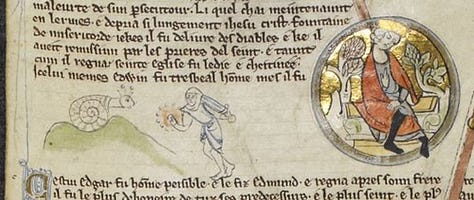 maleurte de sun persecutour. Li quel chai meintenaunt
en lermes. e depria si lungement ihesu crist fountaine
de misericorde ke il fu delivre des diables e ke il
aveit remissiun par les prieres del seint. e taunt
cum il regna seinte eglise fu ledie e
Icelui meimes Edwin fu tresbeal home mes il fu
Cestui Edgar fu home peisible. e le fiz Edmund. e regna apres soun frere
il fu le plus de honour de tuz ses predecessurs. e le plus seint. e le plus